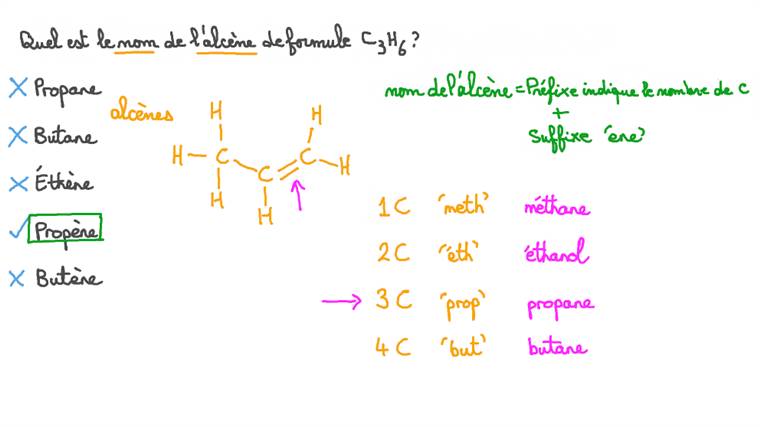 Quel est le nom de l'alcène de formule C₃H₆?
Propane
Butane
Éthène
Propène
Butène
alcènes
H
H
H
C
C
H
C
H
H
H
nom de l'alcène = Préfixe indique le nombre de C
+
Suffixe 'ène'
1 C 'meth' méthane
2 C 'éth' éthanol
3 C 'prop' propane
4 C 'but' butane